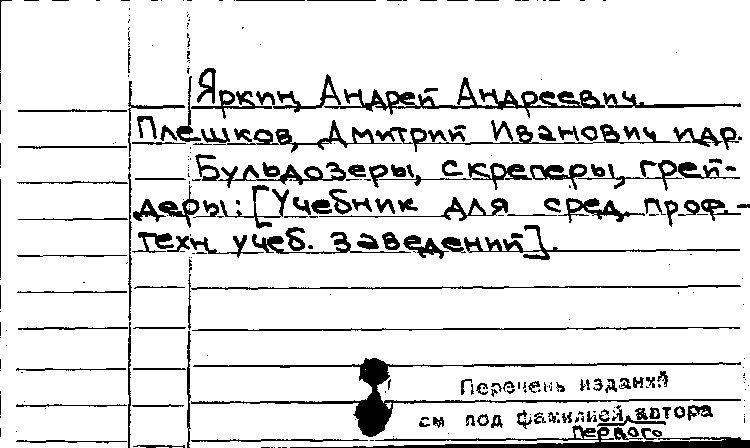 Яркин, Андрей Андреевич.
Плешков, Дмитрий Иванович и др.
Бульдозеры, скреперы, грей-
деры: [Учебник для сред. проф.-
техн. учеб. заведений].
Перечень изданий
см под фамилией автора
первого